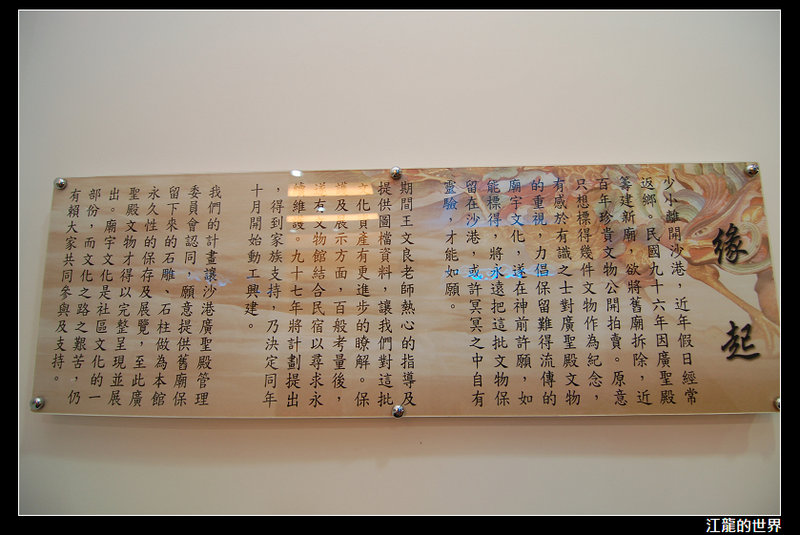 緣起
少小離開沙港，近年假日經常
返鄉。民國九十六年因廣聖殿
籌建新廟，欲將舊廟拆除，近
百年珍貴文物公開拍賣。原意
只想標得幾件文物作為紀念，
有感於有識之士對廣聖殿文物
的重視，力倡保留難得流傳的
廟宇文化，遂在神前許願，如
能標得，將永遠把這批文物保
留在沙港，或許冥冥之中自有
靈驗，才能如願。
期間王文良老師熱心的指導及
提供圖檔資料，讓我們對這批
文化資產有更進步的瞭解。保
護及展示方面，百般考量後，
文物館結合民宿以尋求永
續維護。九十七年將計劃提出
，得到家族支持，乃決定同年
十月開始動工興建。
我們的計畫讓沙港廣聖殿管理
委員會認同，願意提供舊廟保
留下來的石雕、石柱做為本館
永久性的保存及展覽，至此廣
聖殿文物才得以完整呈現並展
出。廟宇文化是社區文化的一
部份，而文化之路之艱苦，仍
有賴大家共同參與及支持。
江龍的世界